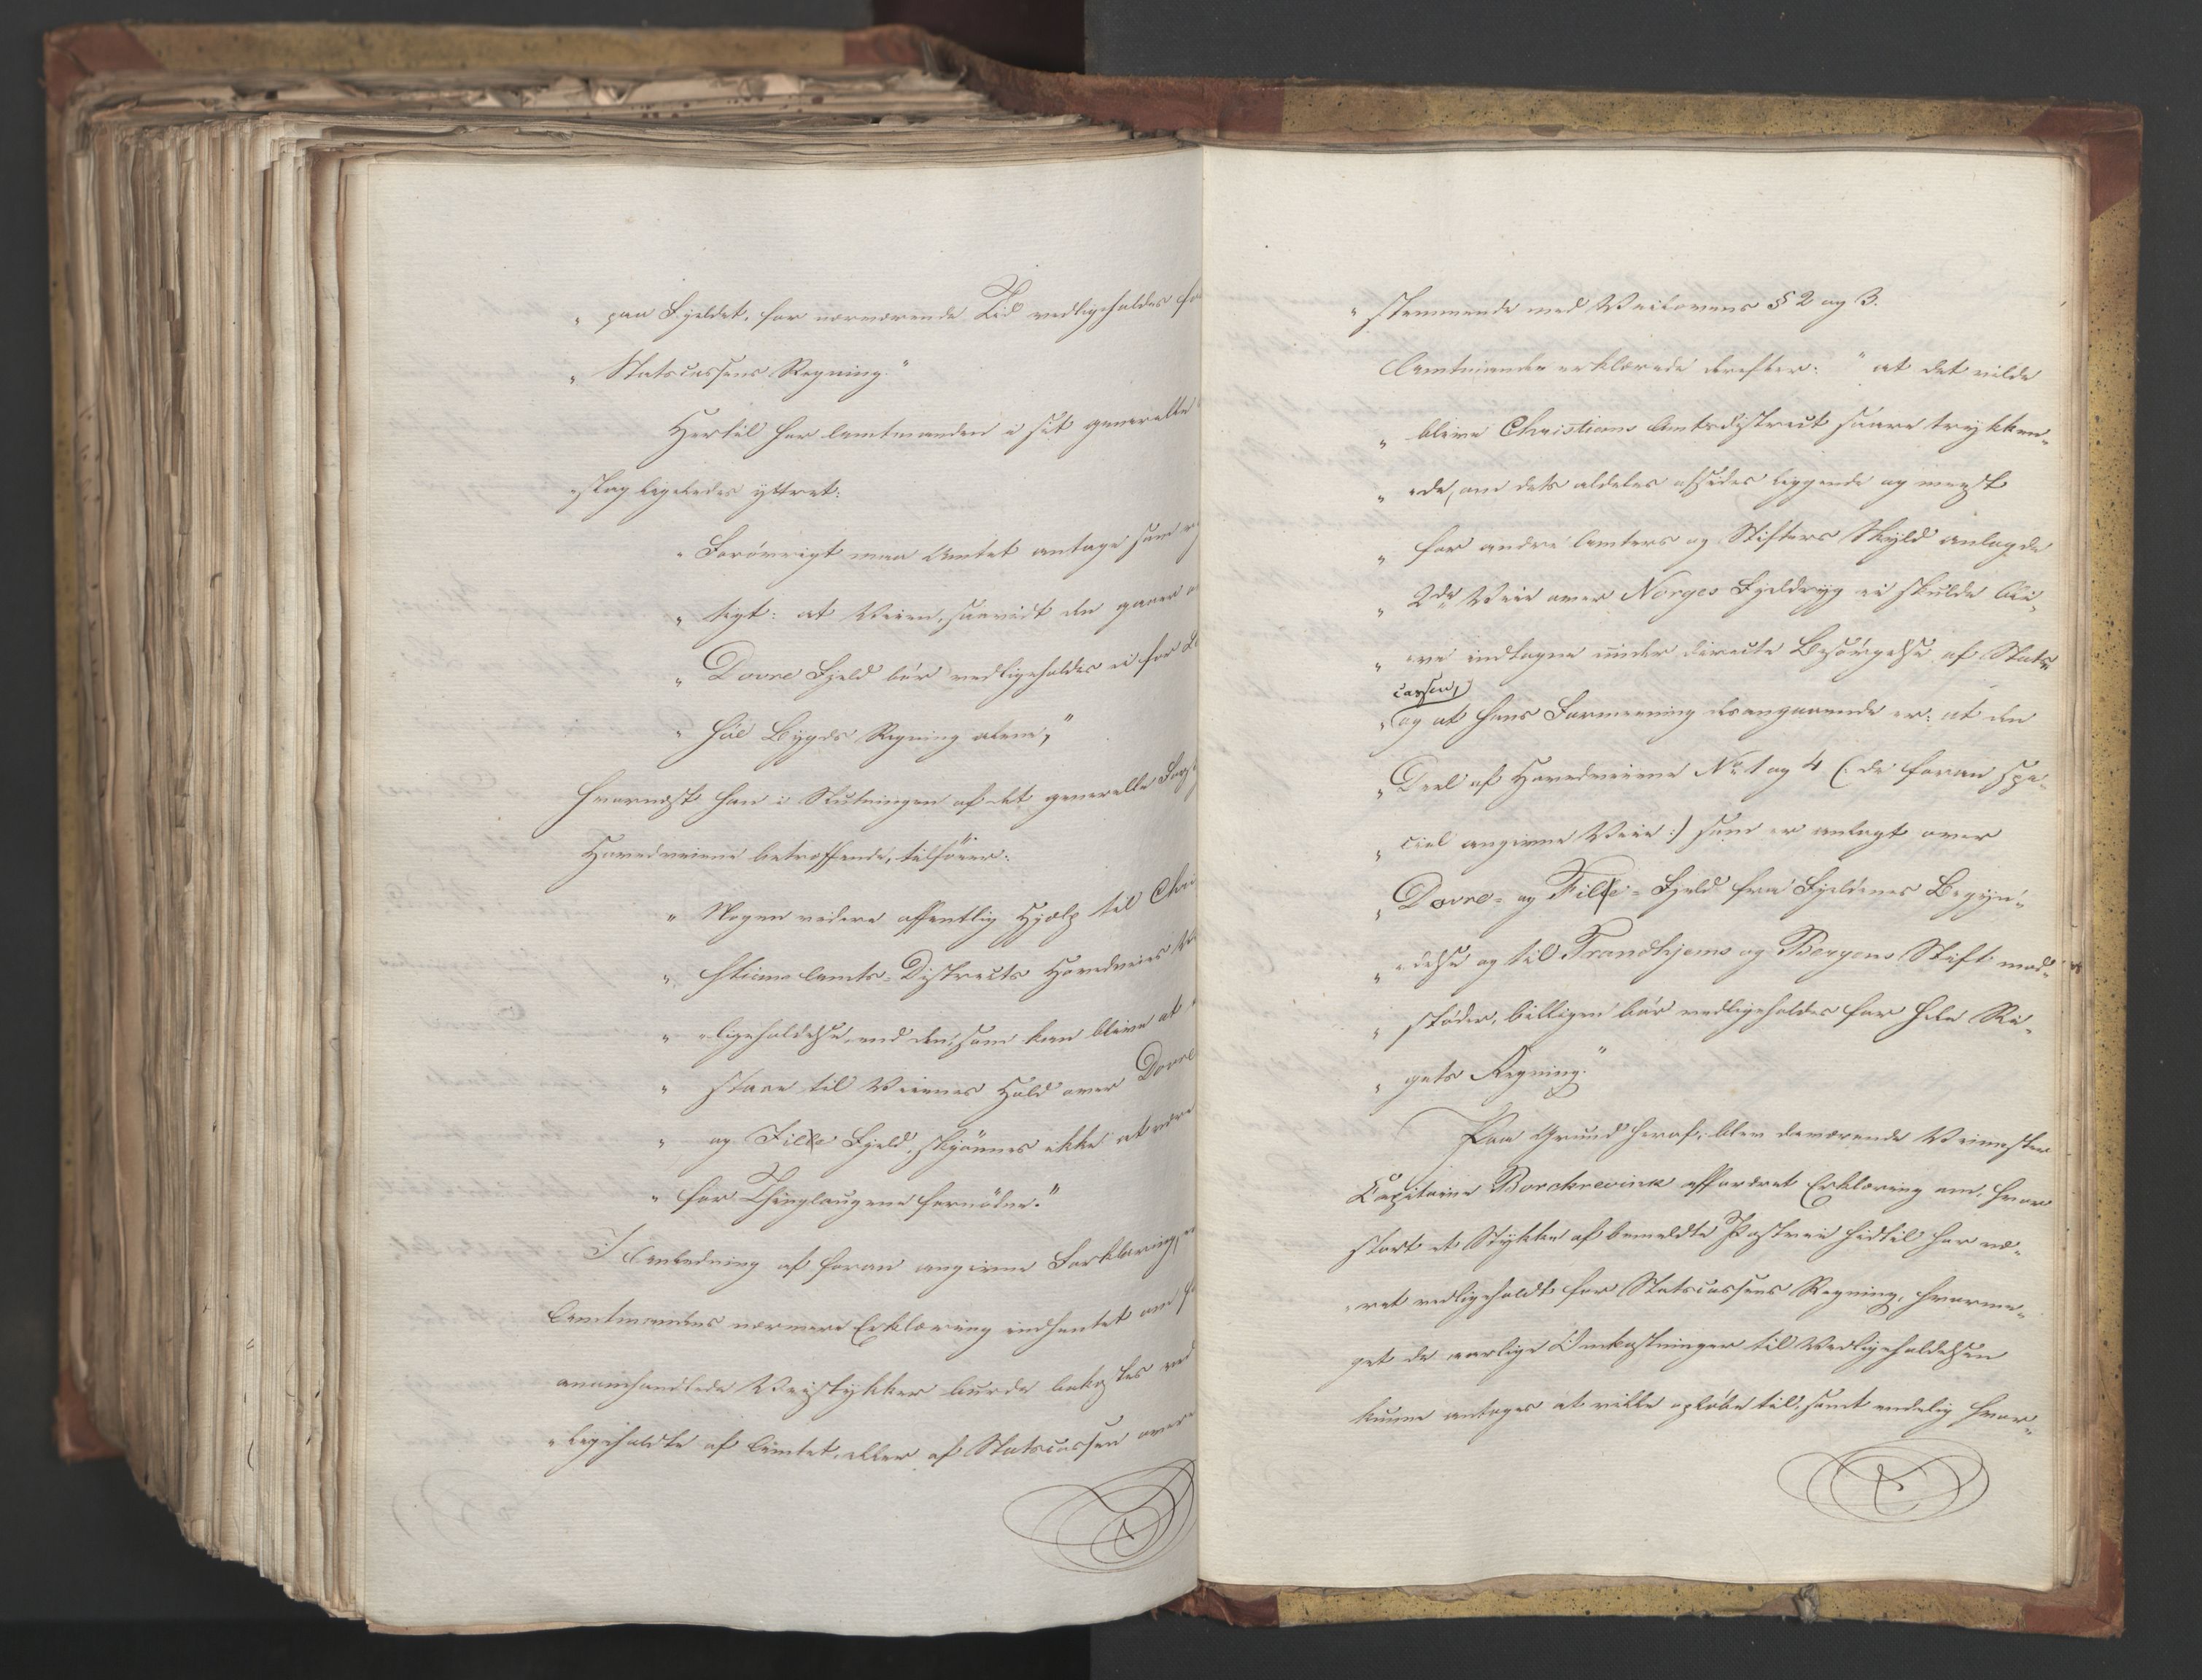 „ paa Fjeldet, for nærværende Tid vedligeholdes fo
„ Statscassens Regning.“
Hertil har Amtmanden i sit generelle
„slag ligeledes yttret:
„ Forövrigt maa Amtet antage som r
„ tigt: at Veien, saavidt den gaaer o
„ Dovre Fjeld bör vedligeholdes ei for
„ Bygds Regning alene,“
hvornæst han i Slutningen af det generelle Fors
Hovedveiene betræffende, tilföier:
„ Nogen videre offentlig Hjælp til Chri
„ stians Amts-Districts Hovedveies Ve
„ „ligeholdelse, end den, som kan blive at
„ staae til Veienes Hold over Dovre
„ og Fille Fjeld, skjönnes ikke at være
„ for Thinglaugene fornöden.“
I Anledning af foran angivne Forklaring,
Amtmandens nærmere Erklæring indhentet om
ommhandlede Veistykker burde bekostes ved
„ligeholdte af Amtet, eller af Statscassen over
„stemmende med Veilovens § 2 og 3.
Amtmanden erklærede derefter: „at det vilde
„ blive Christians Amtsdistrict saare trykken„
„ „de, om dets aldeles afsides liggende og meest
„ for andre Amters og Stifters Skyld anlagde
„ 2de Veie over Norges Fjeldryg ei skulde bli„
„ „ve indtagne under directe Besörgelse af Stats„
cassen,
„og at hans Formeening desangaaende er: at den
„Deel af Hovedveiene No 1 og 4 (: de foran spe„
„ ciel angivne Veie :) som er anlagt over
„Dovre- og Fille-Fjeld fra Fjeldenes Begyn„
„ „delse og til Trondhjems og Bergens Stift mod„
„ stöder, billigen bör vedligeholdes for hele Ri„
„ gets Regning.“
Paa Grund heraf, blev daværende Veimester
Capitaine Borchrevink affordret Erklæring om, hvor
stort et Stykke af bemeldte Postvei hidtil har væ„
„ret vedligeholdt for Statscassens Regning, hvorme„
get de aarlige Omkostninger til Vedligeholdelsen
kunne antages at ville oplöbe til, samt endelig hvor„